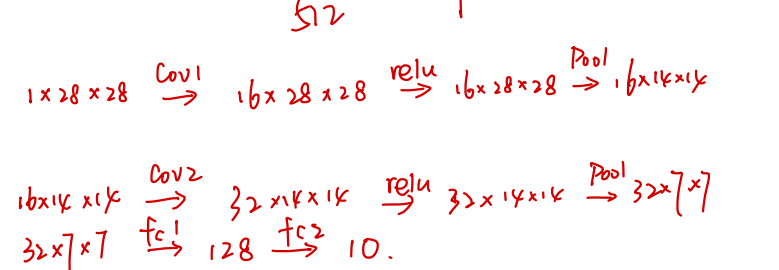 512
1×28×28 Cov1→ 16×28×28 relu→ 16×28×28 Pool→ 16×14×14
16×14×14 Cov2→ 32×14×14 relu→ 32×14×14 Pool→ 32×7×7
32×7×7 fc1→ 128 fc2→ 10.